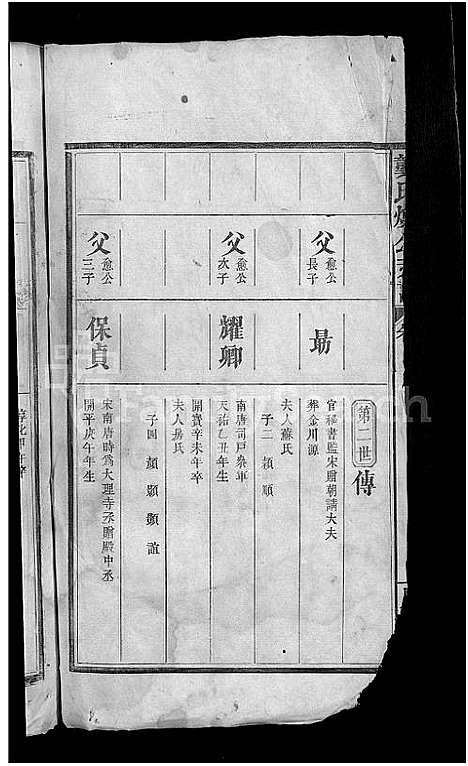 第二世
傳
父 愈公長子
勗
官秘書監宋贈朝請大夫
葬金川源
夫人蘇氏
子二 穎 順
父 愈公次子
耀卿
南唐司戶參軍
天祐乙丑年生
開寶辛未年卒
夫人馮氏
子四 頡 顥 顗 誼
父 愈公三子
保貞
宋南唐時為大理寺丞贈殿中丞
開平庚午年生